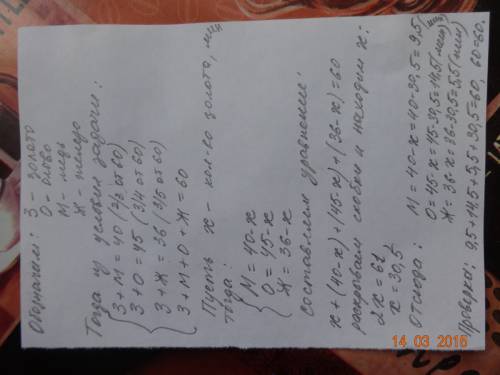 Обозначаем: З - золото
О - олово
М - медь
Ж - железо
Тогда из условия задачи:
З+М = 40 (2/3 от 60)
З+О = 45 (3/4 от 60)
З+Ж = 36 (3/5 от 60)
З+М+О+Ж = 60
Пусть х - кол-во золота, мин
тогда:
М = 40-х
О = 45-х
Ж = 36-х
Составляем уравнение:
х+(40-х)+(45-х)+(36-х)=60
раскрываем скобки и находим х:
2х = 61
х = 30,5
Отсюда: М = 40-х = 40-30,5 = 9,5 (мин)
О = 45-х = 45-30,5 = 14,5 (мин)
Ж = 36-х = 36-30,5 = 5,5 (мин)
Проверка: 9,5+14,5+5,5+30,5=60, 60=60.
14 03 2016